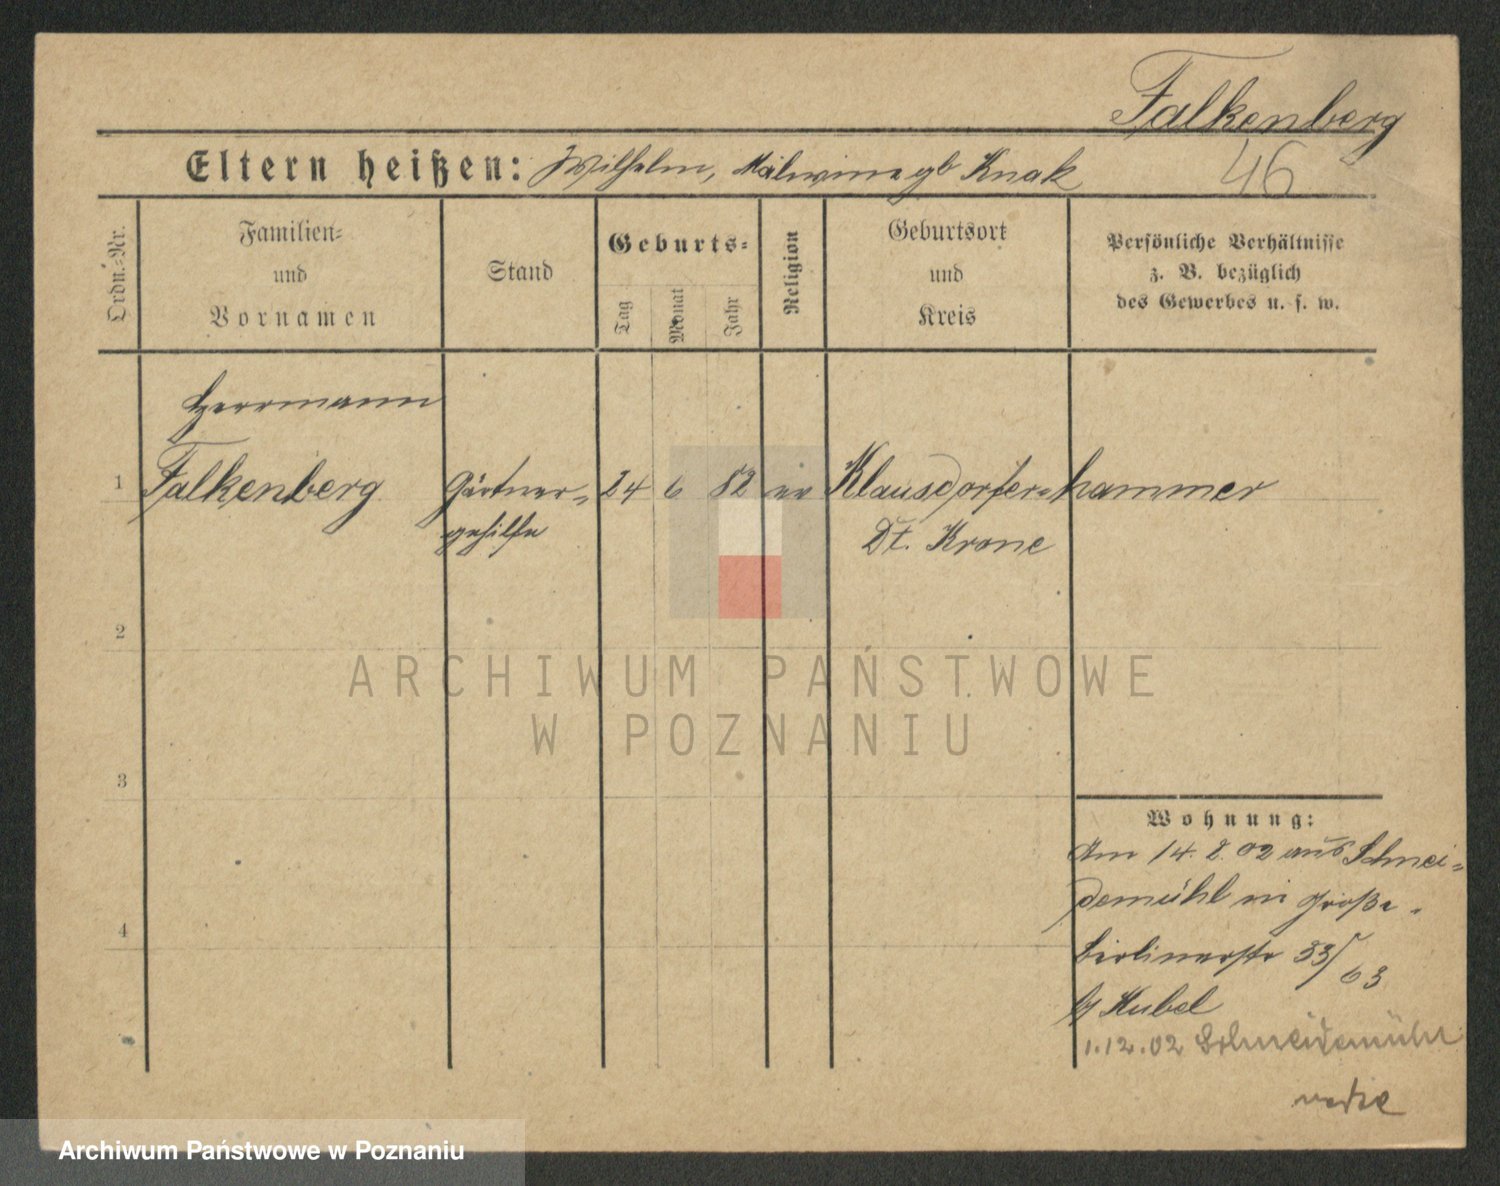 Falkenberg
46
Eltern heißen: Wilhelm, Malwine gb Knak
Ordn.-Nr.
Familien-
und
Vornamen
Stand
Geburts-
Tag
Monat
Jahr
Religion
Geburtsort
und
Kreis
Persönliche Verhältnisse
z. B. bezüglich
des Gewerbes u. s. w.
Herrmann
1 Falkenberg Gärtner- 24 6 82 ev Klausdorfer-hammer
gehilfe Dt. Krone
2
ARCHIWUM PAŃSTWOWE
W POZNANIU
3
Wohnung:
Am 14. 8. 02 aus Schnei-
demühl in Große
4
Berlinerstr 33/63
b/ Hubel
1.12.02 Schneidemühl
Archiwum Państwowe w Poznaniu